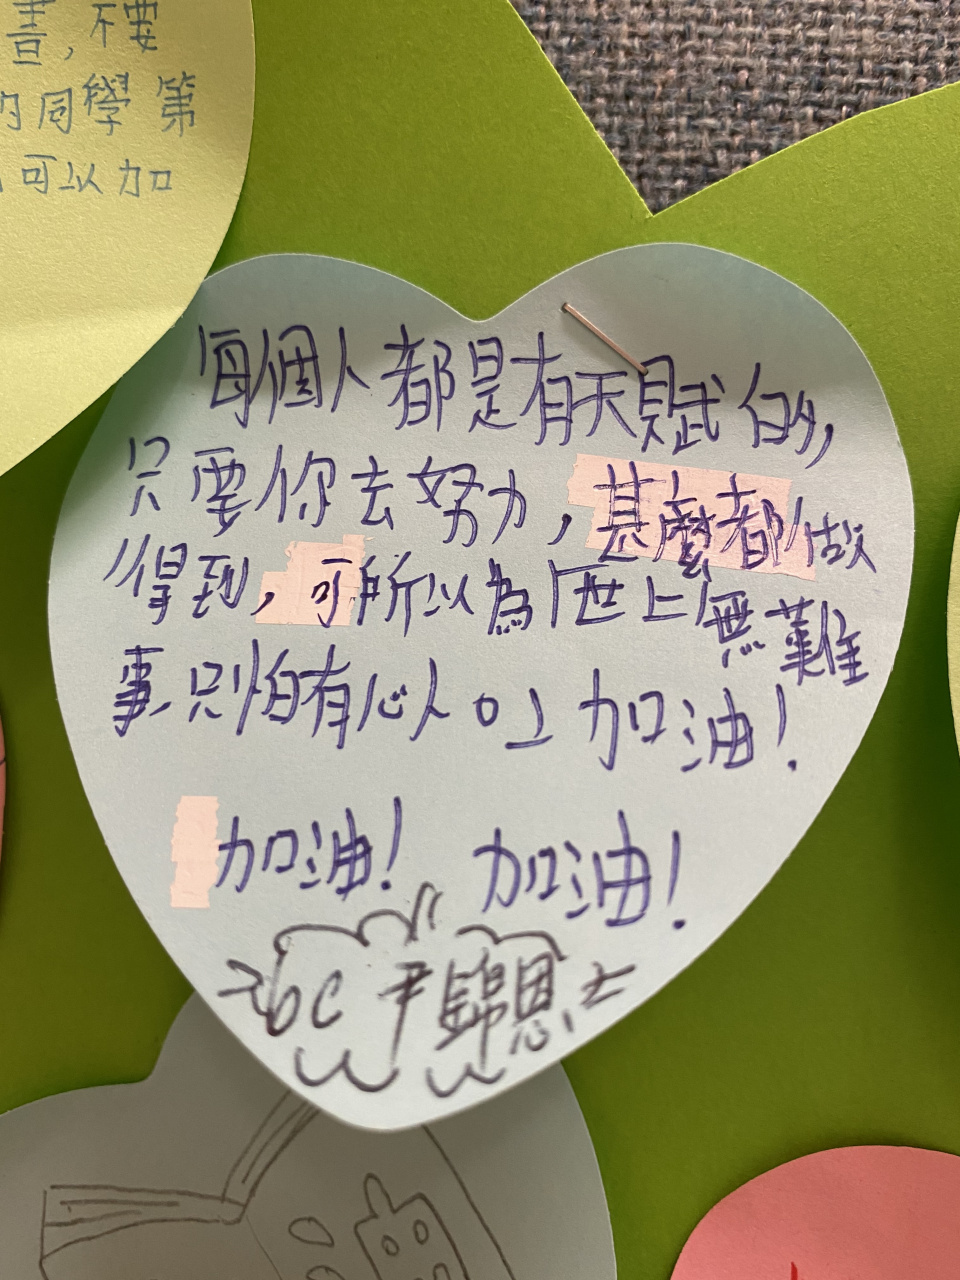 畫,不要
的同學 第
可以加
每個人都是有天賦的,
只要你去努力,甚麼都做
得到,可所以為「世上無難
事,只怕有心人」加油!
加油! 加油!
6C 尹錦恩